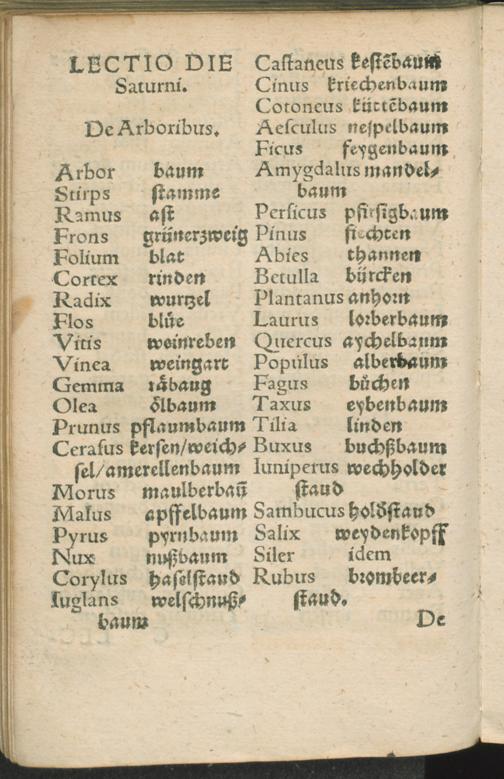 LECTIO DIE
Saturni.
De Arboribus.
Arbor baum
Stirps stamme
Ramus ast
Frons grünerzweig
Folium blat
Cortex rinden
Radix wurtzel
Flos blüe
Vitis weinreben
Vinea weingart
Gemma räbaug
Olea ölbaum
Prunus pflaumbaum
Cerasus kersen/weich-
sel/amerellenbaum
Morus maulberbaū
Malus apffelbaum
Pyrus pyrnbaum
Nux nußbaum
Corylus haselstaud
Iuglans welschnuß-
baum
Castaneus kestēbaum
Cinus kriechenbaum
Cotoneus küttēbaum
Aesculus nespelbaum
Ficus feygenbaum
Amygdalus mandel-
baum
Persicus pfirsigbaum
Pinus fiechten
Abies thannen
Betulla bürcken
Plantanus anhorn
Laurus lorberbaum
Quercus aychelbaum
Populus alberbaum
Fagus bůchen
Taxus eybenbaum
Tilia linden
Buxus buchßbaum
Iuniperus wechholder
staud
Sambucus holdstaud
Salix weydenkopff
Siler idem
Rubus brombeer-
staud.
De